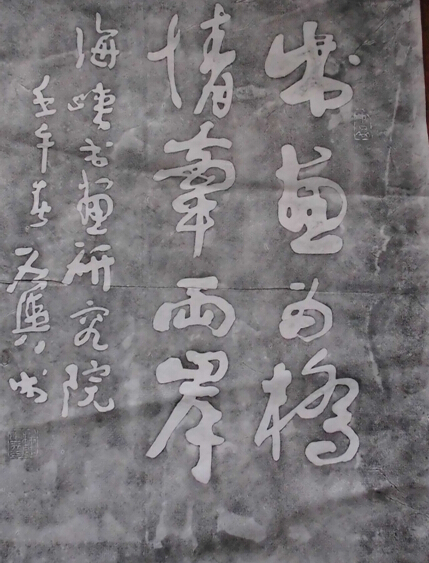 书画为桥
情牵两岸
海峡书画研究院
壬午春 书